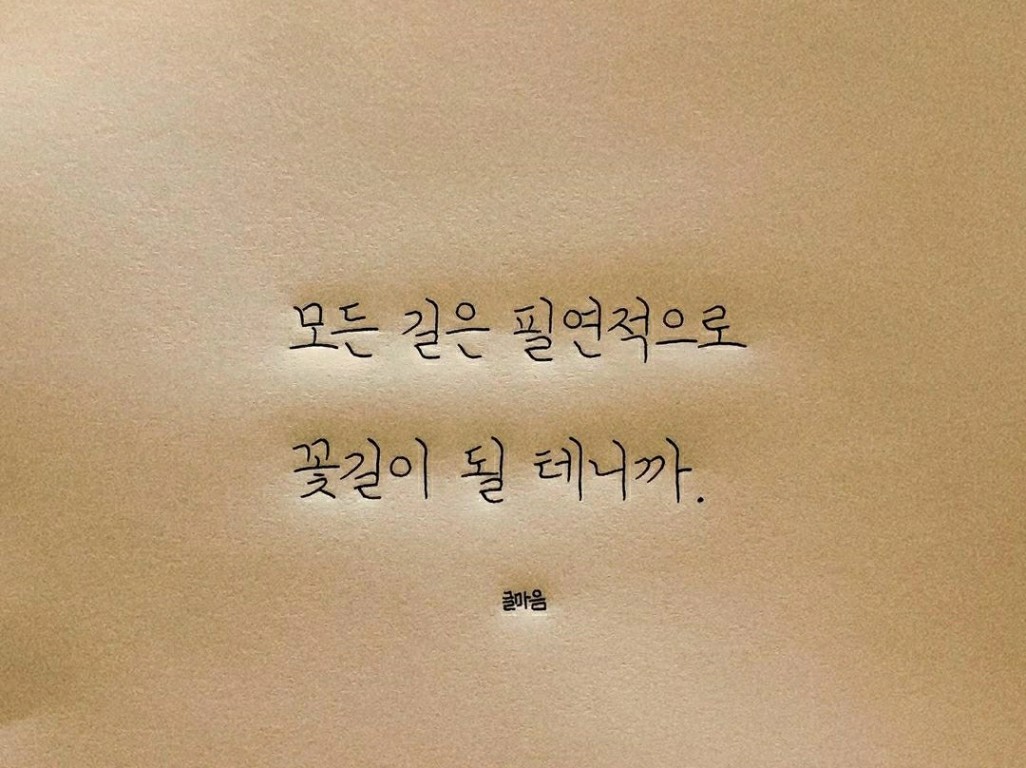 모든 길은 필연적으로
꽃길이 될 테니까.
글마음